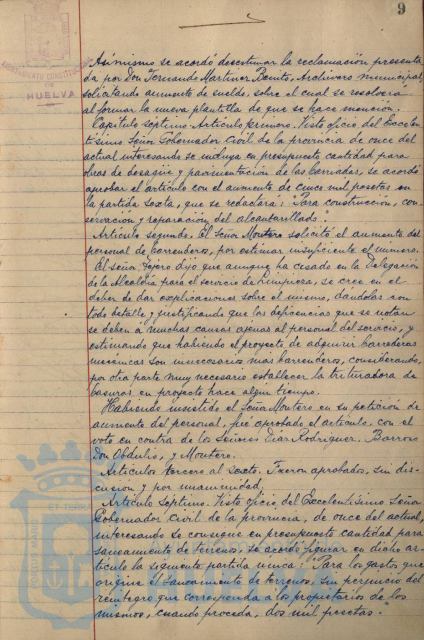 9
AYUNTAMIENTO CONSTITUCIONAL
DE
HUELVA
Asimismo se acordó desestimar la reclamación presenta-
da por Don Fernando Martinez Benito, Archivero municipal,
solicitando aumento de sueldo, sobre el cual se resolverá
al formar la nueva plantilla de que se hace mención.
Capitulo septimo. Articulo primero. Visto oficio del Excelen-
tisimo Señor Gobernador Civil de la provincia de once del
actual interesando se incluya en presupuesto cantidad para
obras de desague y pavimentación de las barriadas, se acordó
aprobar el articulo con el aumento de cinco mil pesetas en
la partida sexta, que se redactará: "Para construcción, con-
servación y reparación del alcantarillado".
Articulo segundo. El Señor Montero solicitó el aumento del
personal de barrenderos, por estimar insuficiente el número.
El señor Tejero dijo que aunque ha cesado en la Delegación
de la Alcaldia para el servicio de limpieza, se cree en el
deber de dar explicaciones sobre el mismo, dandolas con
todo detalle y justificando que las deficiencias que se notan
se deben á muchas causas ajenas al personal del servicio, y
estimando que habiendo el proyecto de adquirir barrederas
mecánicas son innecesarios mas barrenderos, considerando,
por otra parte muy necesario establecer la trituradora de
basuras en proyecto hace algun tiempo.
Habiendo insistido el Señor Montero en su petición de
aumento del personal, fue aprobado el articulo con el
voto en contra de los Señores Diaz Rodriguez, Barroso
Don Obdulio, y Montero.
Articulos tercero al sexto. Fueron aprobados, sin dis-
cusion y por unanimidad.
Articulo septimo. Visto oficio del Excelentisimo Señor
Gobernador Civil de la provincia, de once del actual,
interesando se consigne en presupuesto cantidad para
saneamiento de terrenos, se acordó figurar en dicho ar-
ticulo la siguiente partida unica: "Para los gastos que
origine el saneamiento de terrenos, sin perjuicio del
reintegro que corresponda á los propietarios de los
mismos, cuando proceda, dos mil pesetas."